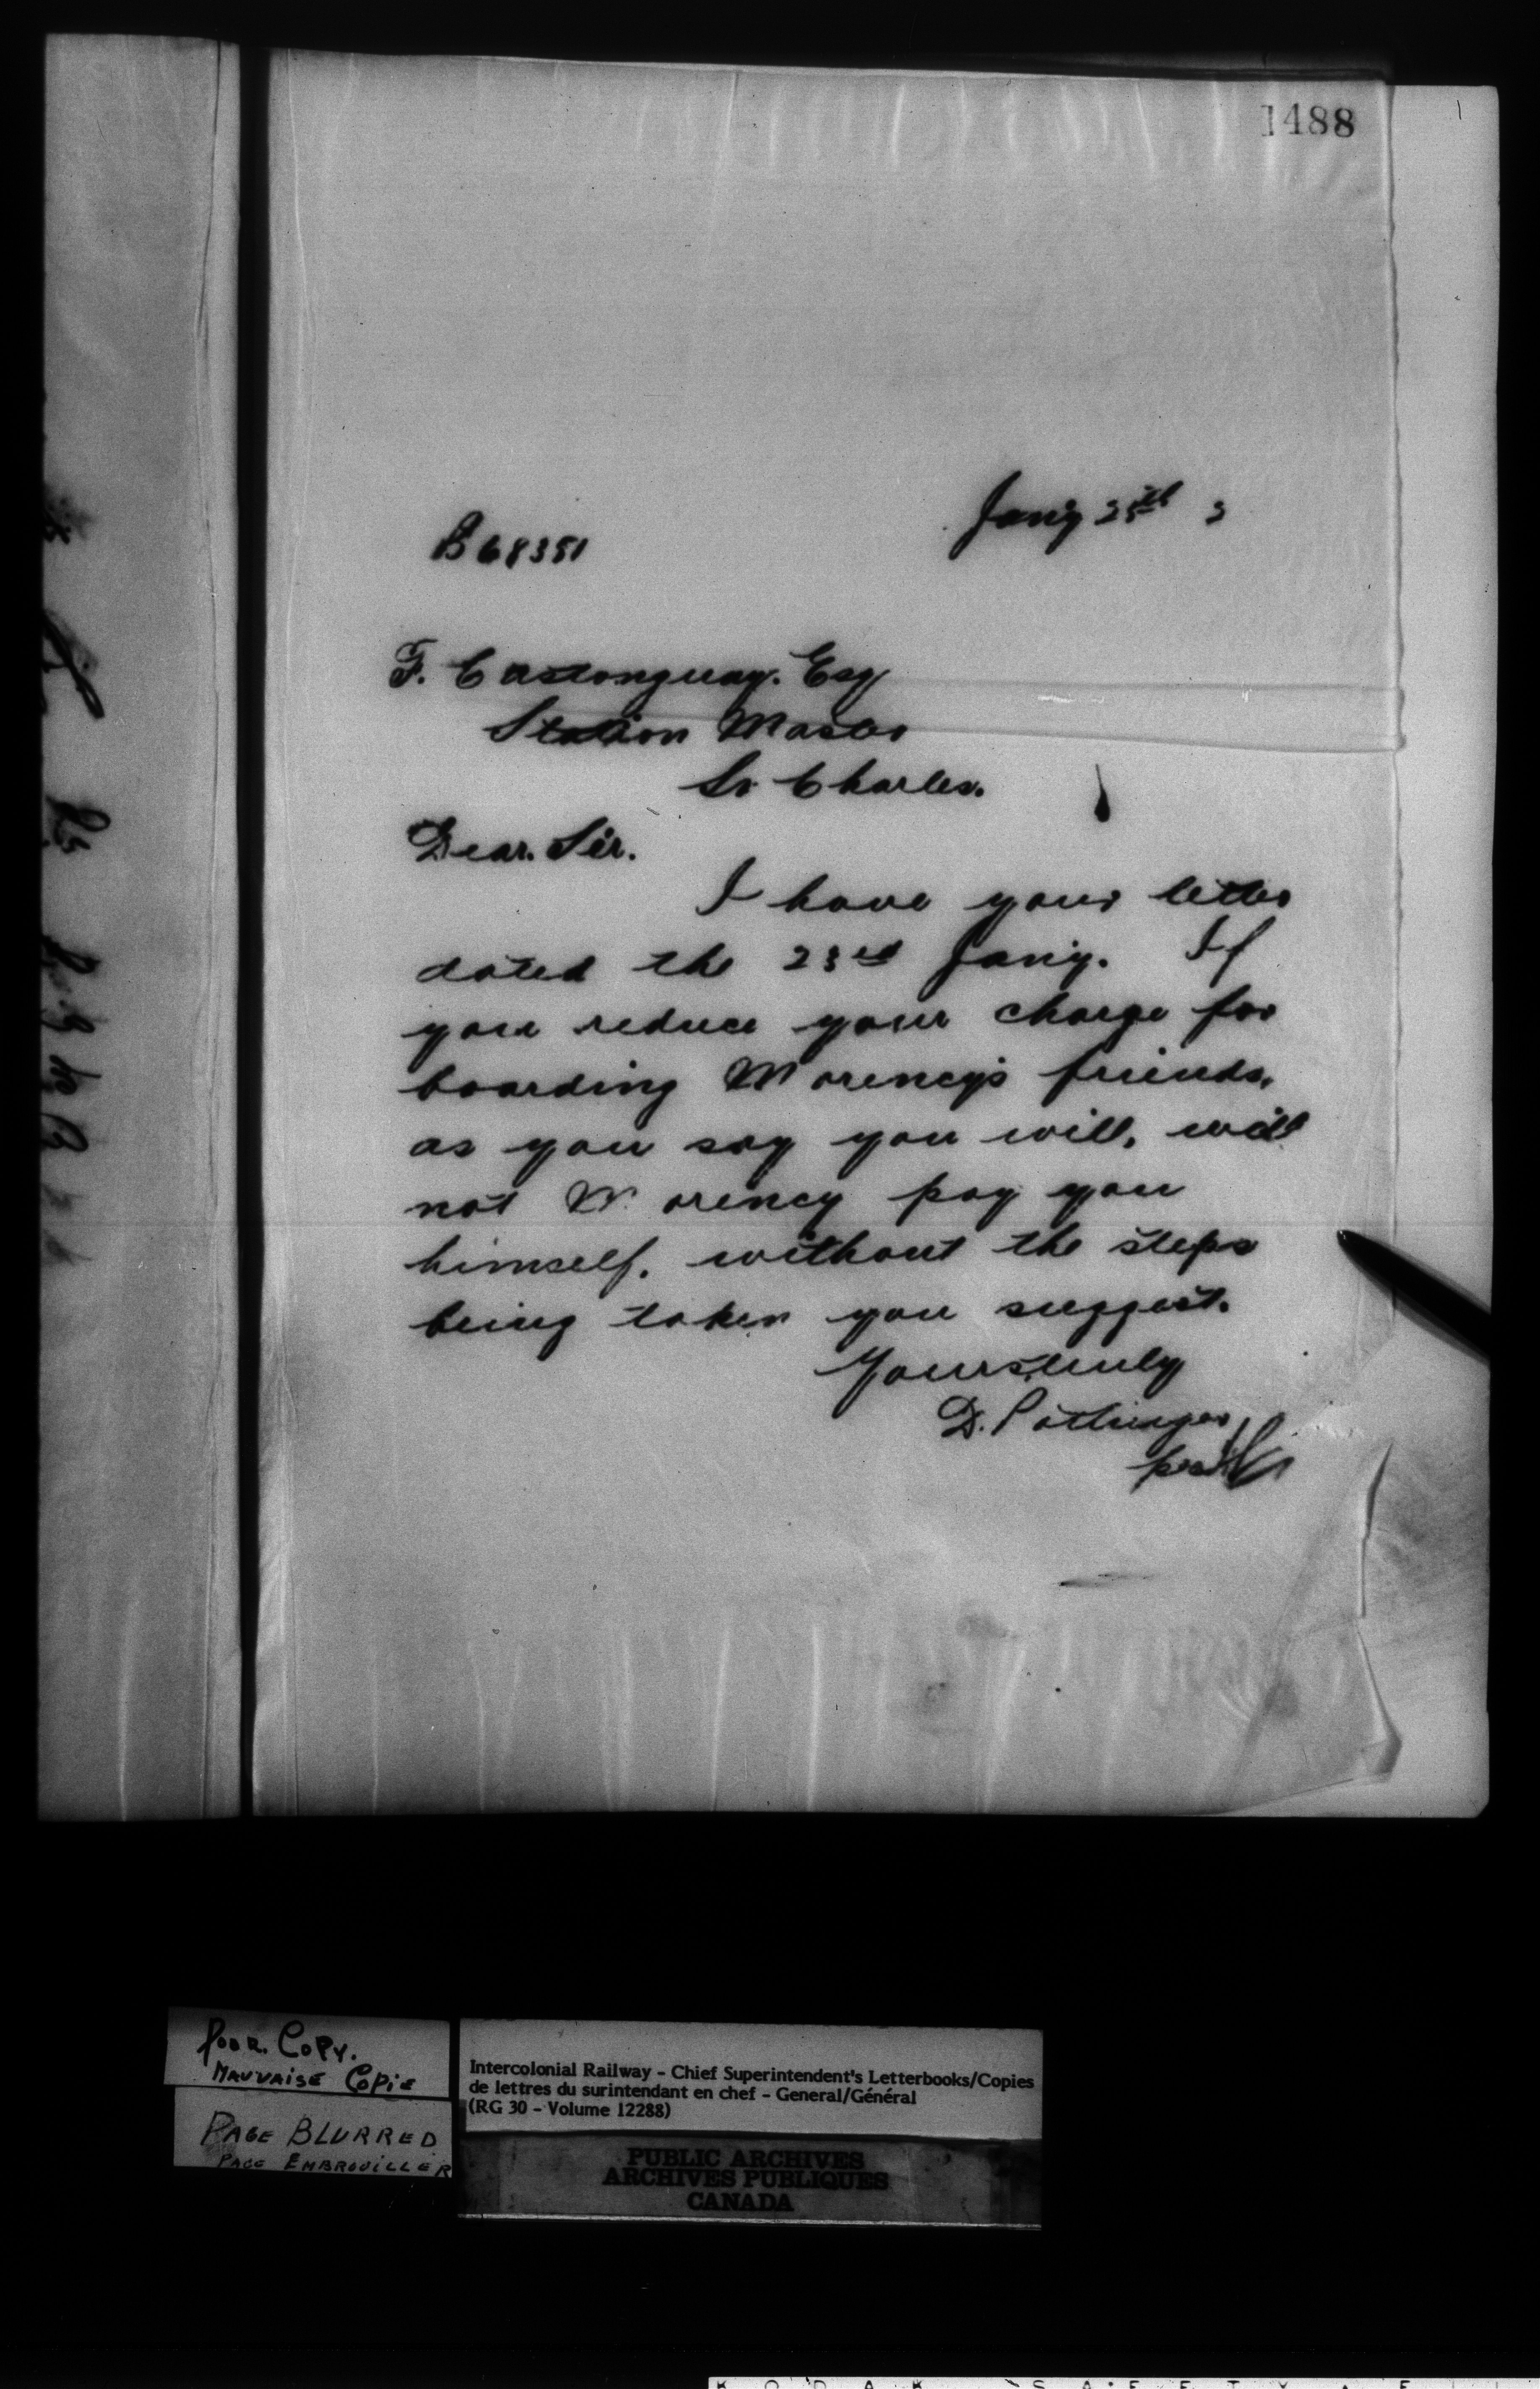 1488
Jan'y 25th 3
B 68351
F. Castonguay. Esq
Station Master
St Charles.
Dear. Sir.
I have your letter
dated the 23rd Jany. If
you reduce your charge for
boarding Morency's friends,
as you say you will, will
not Morency pay you
himself, without the steps
being taken you suggest.
Yours truly
D. Pottinger
per
Poor. Copy.
Mauvaise Copie
Page Blurred
Page Embrouiller
Intercolonial Railway - Chief Superintendent's Letterbooks/Copies
de lettres du surintendant en chef - General/Général
(RG 30 - Volume 12288)
PUBLIC ARCHIVES
ARCHIVES PUBLIQUES
CANADA